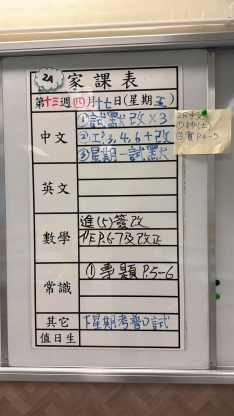 2A
家課表
第十三週四月十七日(星期五)
中文
①試默改×3
②工3,4,6+改
③星期一試默
2A中文
①抄(士)
②書P.4-5
英文
數學
進(5)簽改
作P.6-7及改正
常識
①專題P.5-6
其它
下星期考普口試
值日生